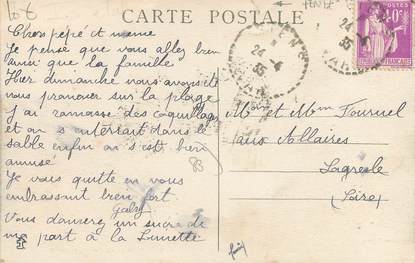 CARTE POSTALE
Chers pépé et meme
Je pense que vous allez bien
ainsi que la famille
Hier dimanche nous avons été
nous promener sur la plage
J'ai ramassé des coquillages
et on s'enterrait dans le
sable enfin on s'est bien
amusé
Je vous quitte en vous
embrassant bien fort
Gaby
Vous donnerez un sucre de
ma part à la Linette
Mons et Mm Fournel
aux Allaires
Lagresle
(Loire)
24
35